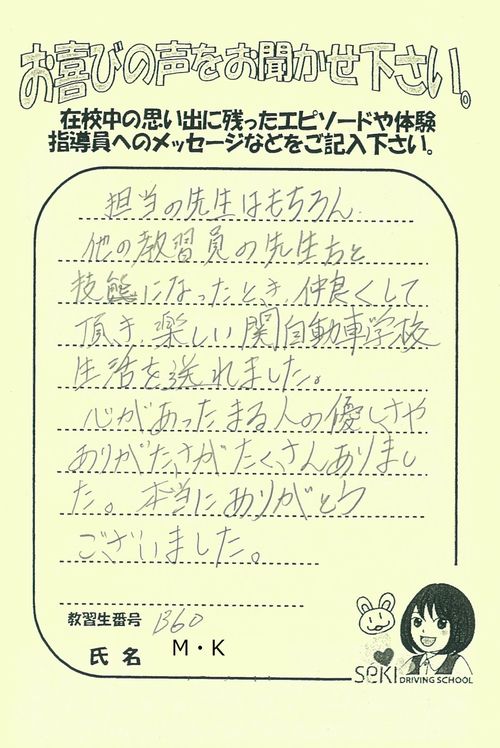 お喜びの声をお聞かせ下さい。
在校中の思い出に残ったエピソードや体験
指導員へのメッセージなどをご記入下さい。
担当の先生はもちろん、
他の教習員の先生方と
技能になったとき、仲良くして
頂き、楽しい関自動車学校
生活を送れました。
心があったまる人の優しさや
ありがたさがたくさんありまし
た。本当にありがとう
ございました。
教習生番号 B60
氏名 M・K
SeKI DRIVING SCHOOL